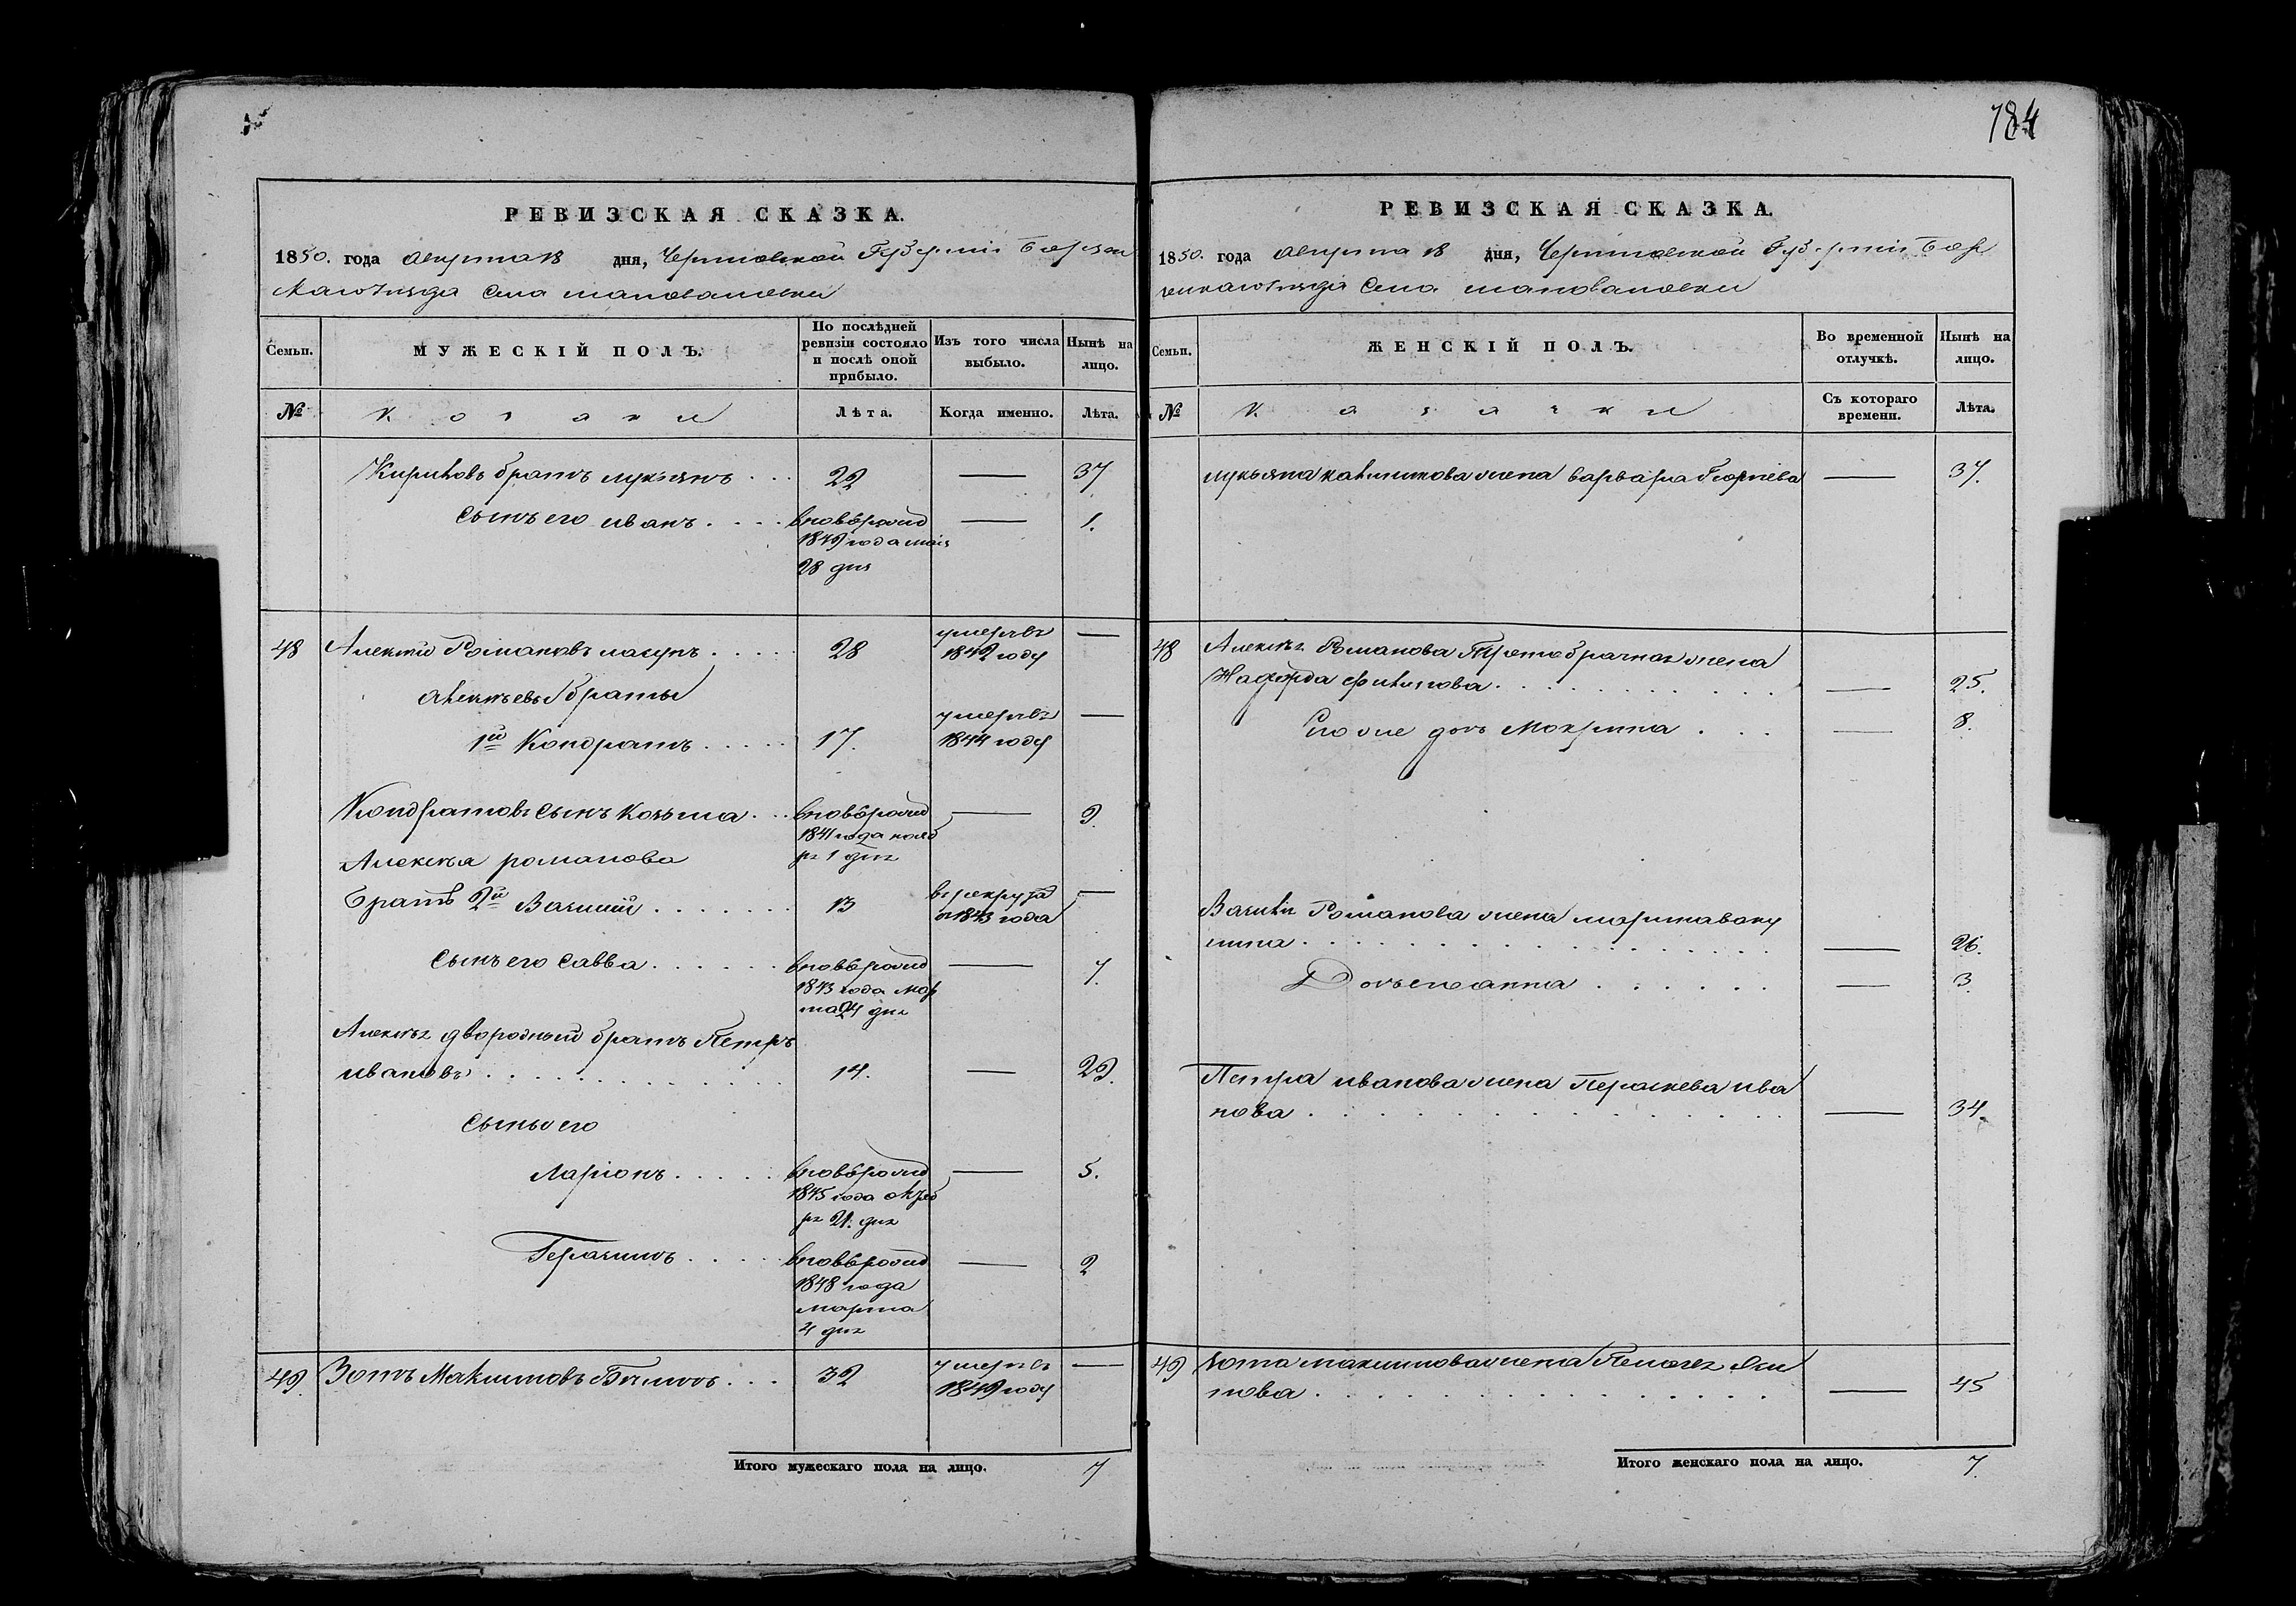 184
РЕВИЗСКАЯ СКАЗКА.
1850. года августа 18 дня, Черниговской Губернии Борзен
скаго уезда села шаповаловки
Семьи.
МУЖЕСКІЙ ПОЛЪ.
По послѣдней ревизіи состояло и послѣ оной прибыло.
Изъ того числа выбыло.
Нынѣ на лицо.
№
козаки
Лѣта.
Когда именно.
Лѣта.
братъ лукьянъ 22 — 37
сынъ его иванъ вновьрожд — 1.
1849 года мая
28 дня
48 Алексѣй Романовъ 28 умеръ въ 1842 году —
Алексѣевы братья
1й Кондратъ 17. умеръ въ 1844 году —
Кондратовъ сынъ Козьма вновьрожд — 9.
1841 года нояб
ря 1 дня
Алексѣя романова
братъ 2й Василий 13 в рекрутах 1843 года —
сынъ его савва вновьрожд — 7.
1843 года мар
та 24 дня
Алексѣя двородный братъ Петръ
ивановъ 14. — 29.
сыны его
Ларіонъ вновьрожд — 5.
1845 года октяб
ря 21. дня
Герасимъ вновьрожд — 2
1848 года
марта
4 дня
49. Зотъ Максимовъ 32 умеръ въ 1849 году —
Итого мужескаго пола на лицо. 7
РЕВИЗСКАЯ СКАЗКА.
1850. года августа 18 дня, Черниговской Губернии Борз
енскаго уезда села шаповаловки
Семьи.
ЖЕНСКІЙ ПОЛЪ.
Во временной отлучкѣ.
Нынѣ на лицо.
№
казачки
Съ котораго времени.
Лѣта.
лукьяна жена варвара — 37.
48 Алексѣя Романова жена
— 25.
его же дочь Мокрина — 8.
Василия Романова жена марина
— 26.
Дочь его анна — 3.
Петра иванова жена Параскева ива
нова — 34.
49 зота максимова жена Пелагея
— 45
Итого женскаго пола на лицо. 7.